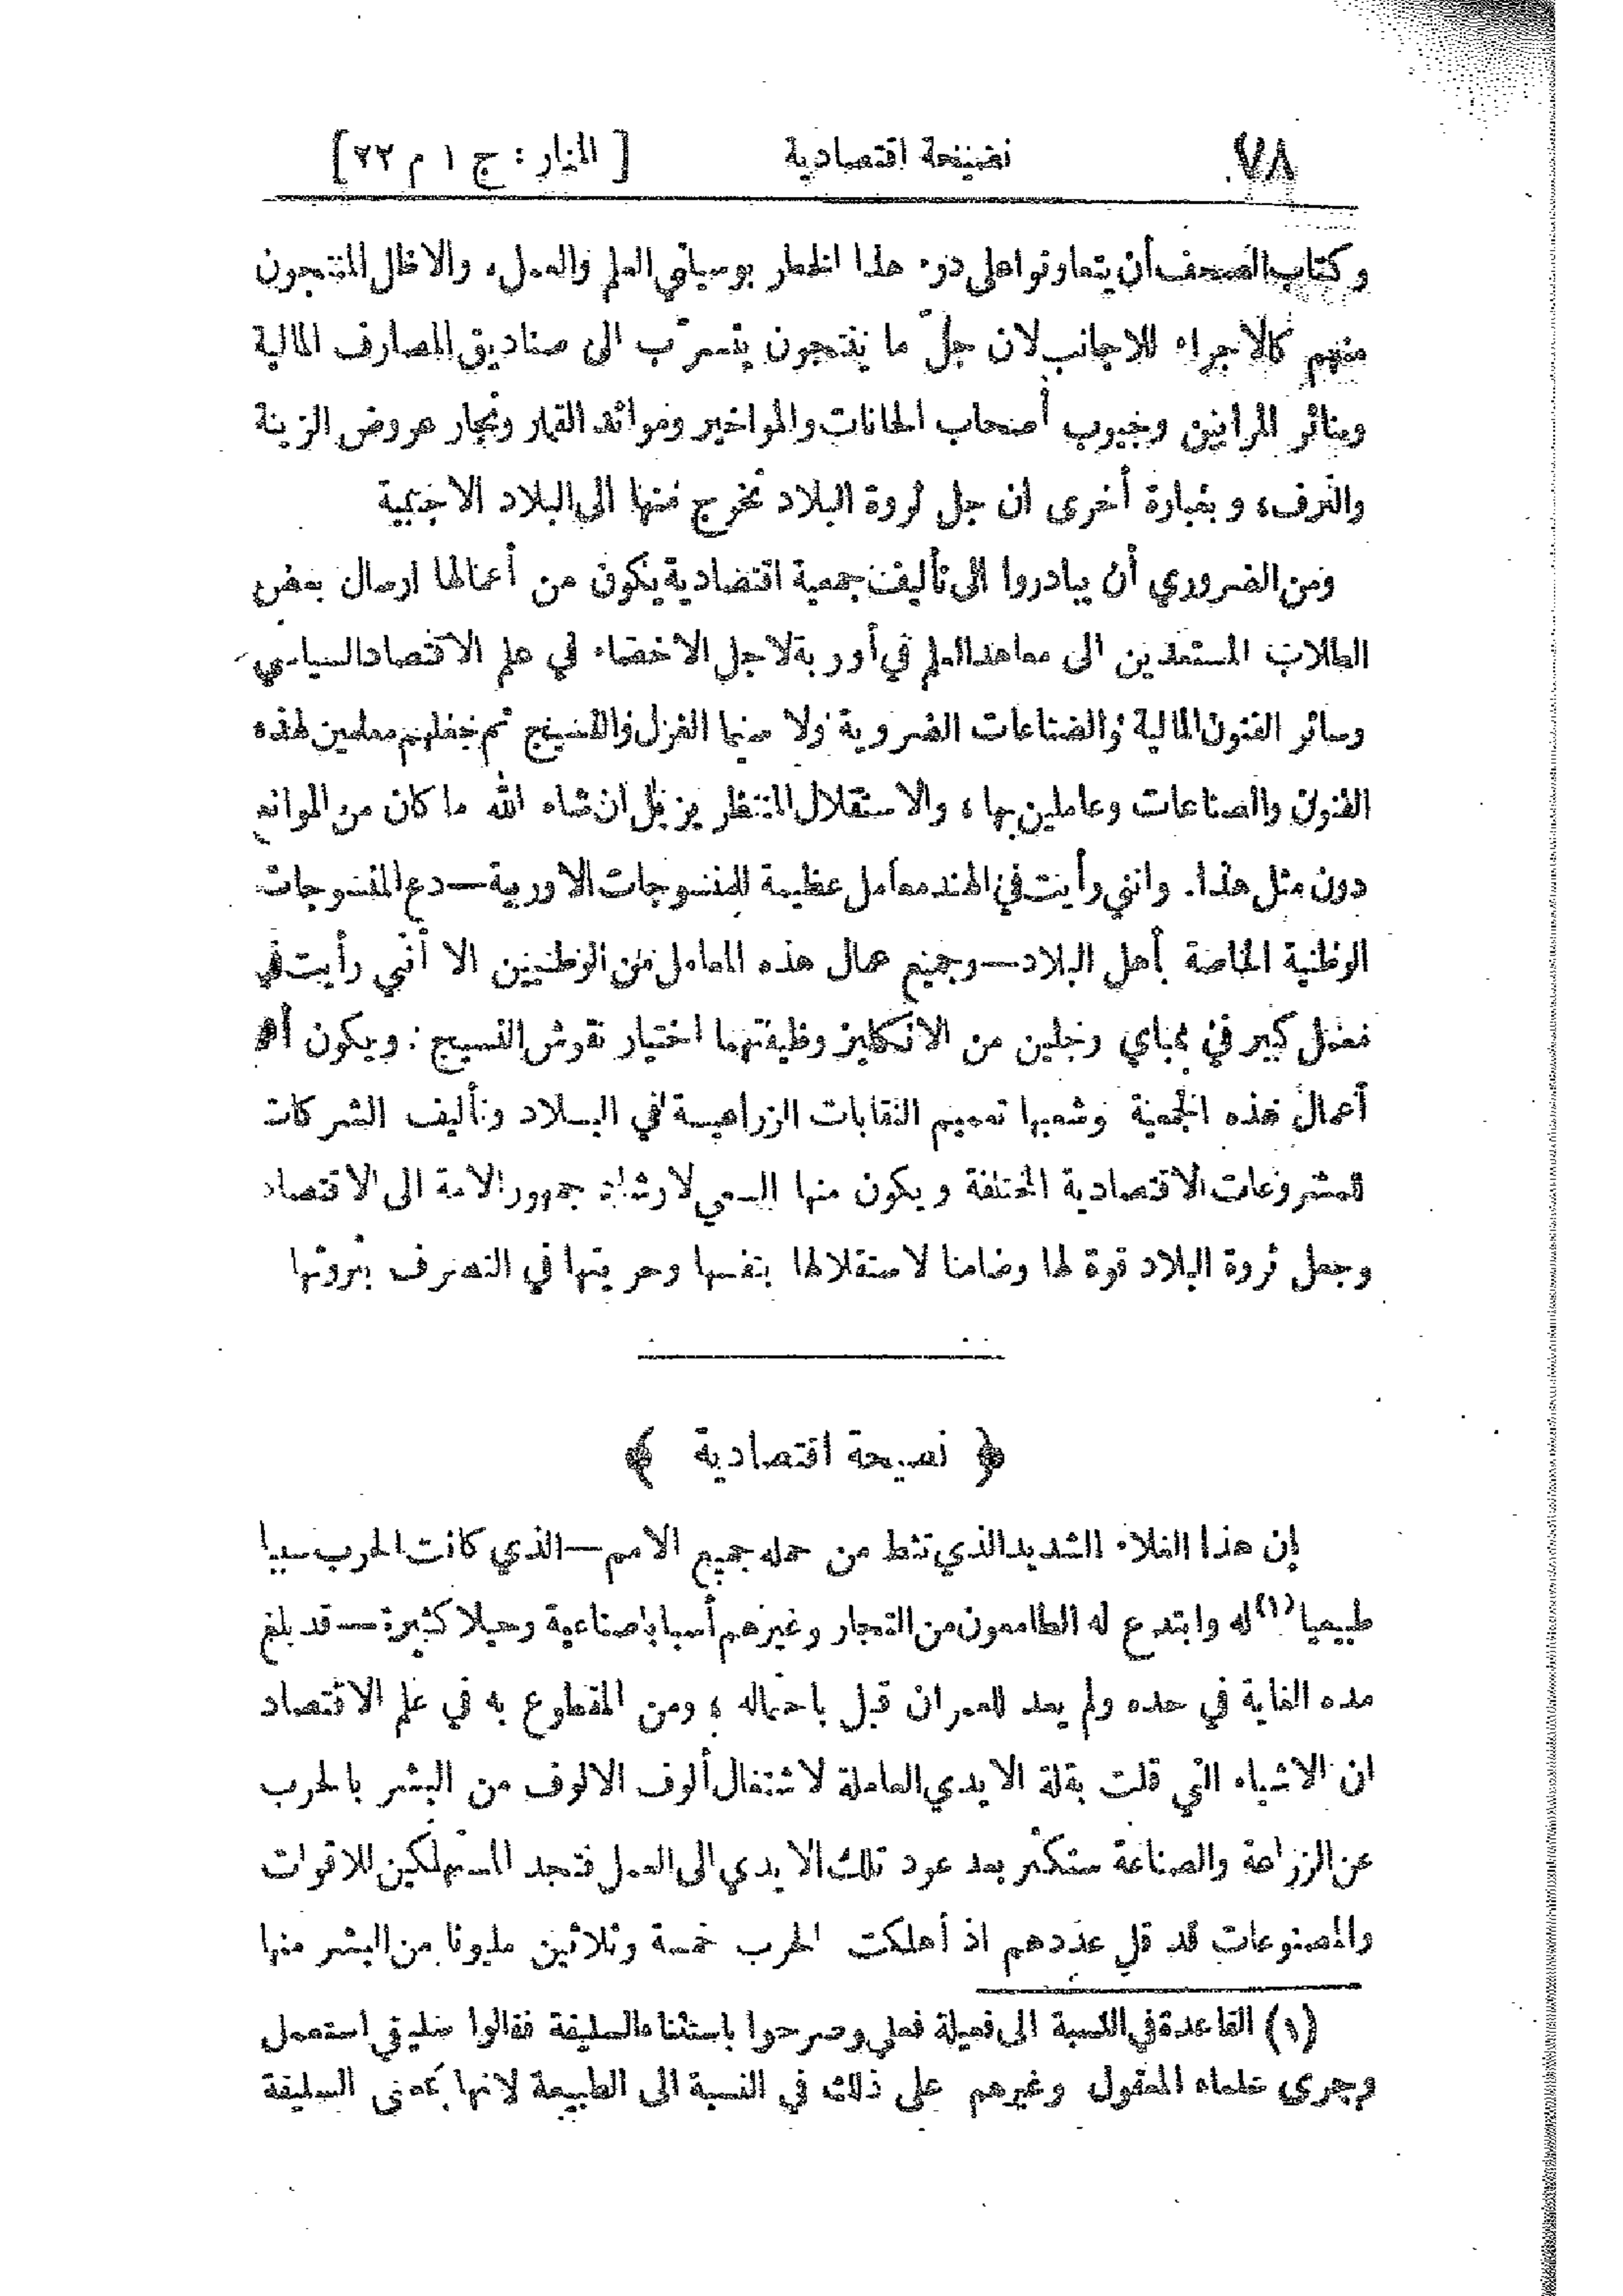 ٧٨ نصيحة اقتصادية [ المنار : ج ١ م ٢٢ ]
وكتاب الصحف أن يتعاونوا على درء هذا الخطر بوسيلتي العلم والعمل، والا ظل المنتجون
منهم كالأجراء للاجانب لان جلّ ما ينتجون يتسرّب الى صناديق المصارف المالية
وسائر المرابين وجيوب أصحاب الحانات والمواخير وموائد القمار وتجار عروض الزينة
والترف، وبعبارة أخرى ان جل ثروة البلاد تخرج منها الى البلاد الاجنبية
ومن الضروري أن يبادروا الى تأليف جمعية اقتصادية يكون من أعمالها ارسال بعض
الطلاب المستعدين الى معاهد العلم في أوربة لاجل الاخصاء في علم الاقتصاد السياسي
وسائر الفنون المالية والصناعات الضروية ولا سيما الغزل والنسيج ثم جعلهم معلمين لهذه
الفنون والصناعات وعاملين بها، والاستقلال المنتظر يزيل ان شاء الله ما كان من الموانع
دون مثل هذا. وانني رأيت في الهند معامل عظيمة للمنسوجات الاوربية — دع المنسوجات
الوطنية الخاصة بأهل البلاد — وجميع عمال هذه المعامل من الوطنيين الا أنني رأيت في
معمل كبير في بمباي رجلين من الانكليز وظيفتهما اختيار نقوش النسيج : ويكون أهم
أعمال هذه الجمعية وشعبها تعميم النقابات الزراعية في البلاد وتأليف الشركات
للمشروعات الاقتصادية المختلفة ويكون منها السعي لارشاد جمهور الامة الى الاقتصاد
وجعل ثروة البلاد قوة لها وضامنا لاستقلالها بنفسها وحريتها في التصرف بثروتها
﴿ نصيحة اقتصادية ﴾
إن هذا الغلاء الشديد الذي تئط من حمله جميع الامم — الذي كانت الحرب سببا
طبيعيا (١) له وابتدع له الطامعون من التجار وغيرهم أسبابا صناعية وحيلا كثيرة — قد بلغ
مده الغاية في حده ولم يعد للعمران قبل باحتماله ؛ ومن المقطوع به في علم الاقتصاد
ان الاشياء التي قلت بقلة الايدي العاملة لاشتغال ألوف الالوف من البشر بالحرب
عن الزراعة والصناعة ستكثر بعد عود تلك الايدي الى العمل فتجد المستهلكين للاقوات
والمصنوعات قد قل عددهم اذ أهلكت الحرب خمسة وثلاثين مليونا من البشر منها
(١) القاعدة في النسبة الى فعيلة فعلي وصرحوا باستثناء السليقة فقالوا سليقي استعمل
وجرى علماء المعقول وغيرهم على ذلك في النسبة الى الطبيعة لانها بمعنى السليقة